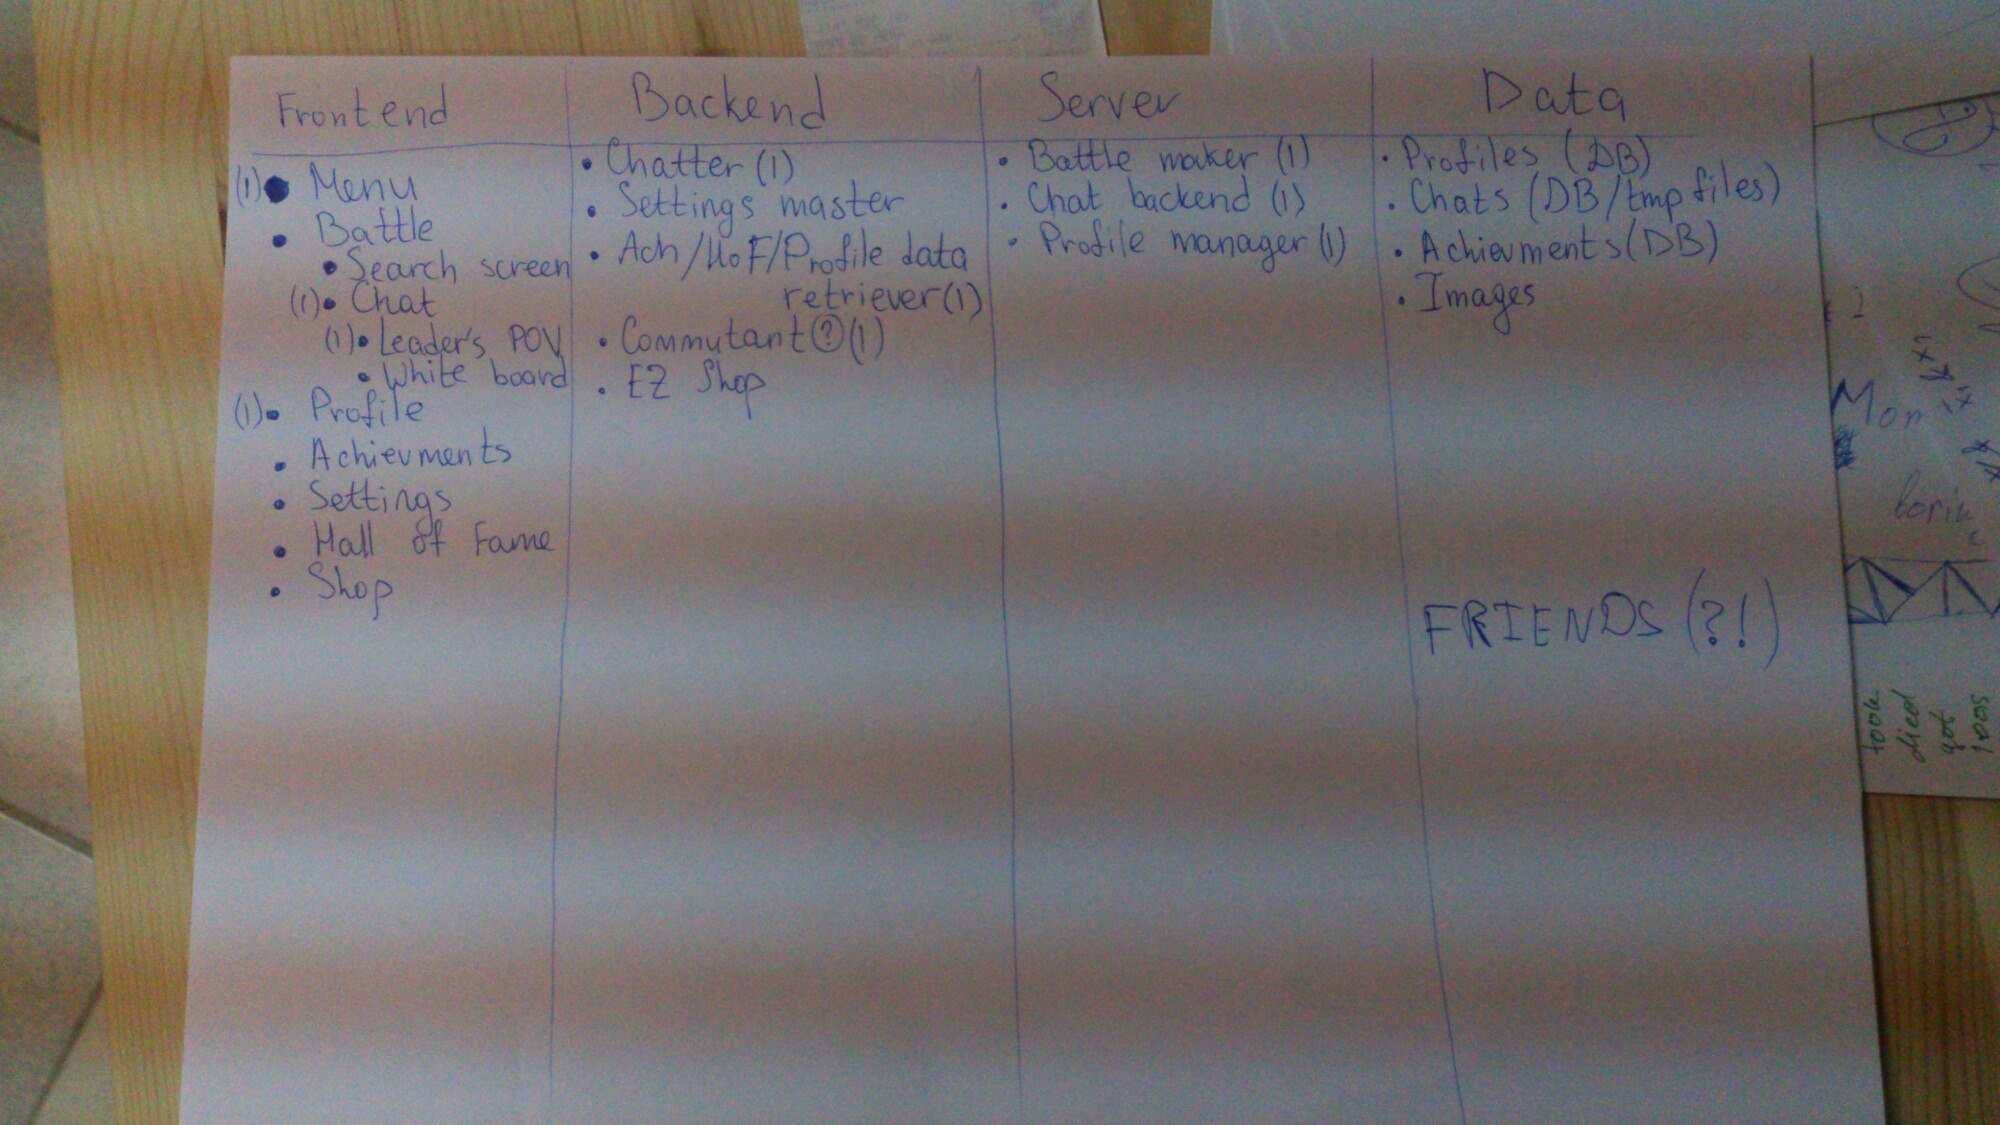 Frontend
(1)• Menu
• Battle
• Search screen
(1)• Chat
(1)• Leader's POV
• White board
(1)• Profile
• Achievments
• Settings
• Hall of Fame
• Shop
Backend
• Chatter (1)
• Settings master
• Ach/HoF/Profile data
retriever (1)
• Commutant ? (1)
• EZ Shop
Server
• Battle maker (1)
• Chat backend (1)
• Profile manager (1)
Data
• Profiles (DB)
• Chats (DB/tmp files)
• Achievments (DB)
• Images
FRIENDS (?!)
died
got